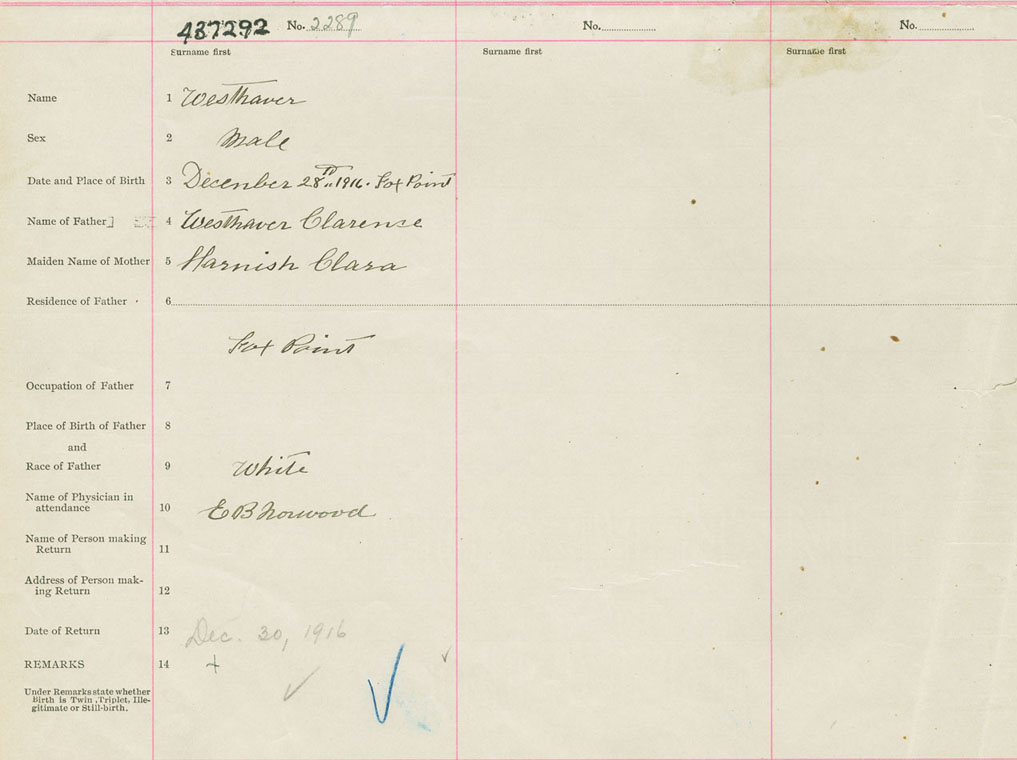 437292 No. 2289 No. No.
Surname first Surname first Surname first
Name 1 Westhaver
Sex 2 Male
Date and Place of Birth 3 December 28TH 1916. Fox Point
Name of Father 4 Westhaver Clarence
Maiden Name of Mother 5 Harnish Clara
Residence of Father 6
Fox Point
Occupation of Father 7
Place of Birth of Father 8
and
Race of Father 9 White
Name of Physician in
attendance 10 E B Norwood
Name of Person making
Return 11
Address of Person mak-
ing Return 12
Date of Return 13 Dec. 30, 1916
REMARKS 14 +
Under Remarks state whether
Birth is Twin, Triplet, Ille-
gitimate or Still-birth.